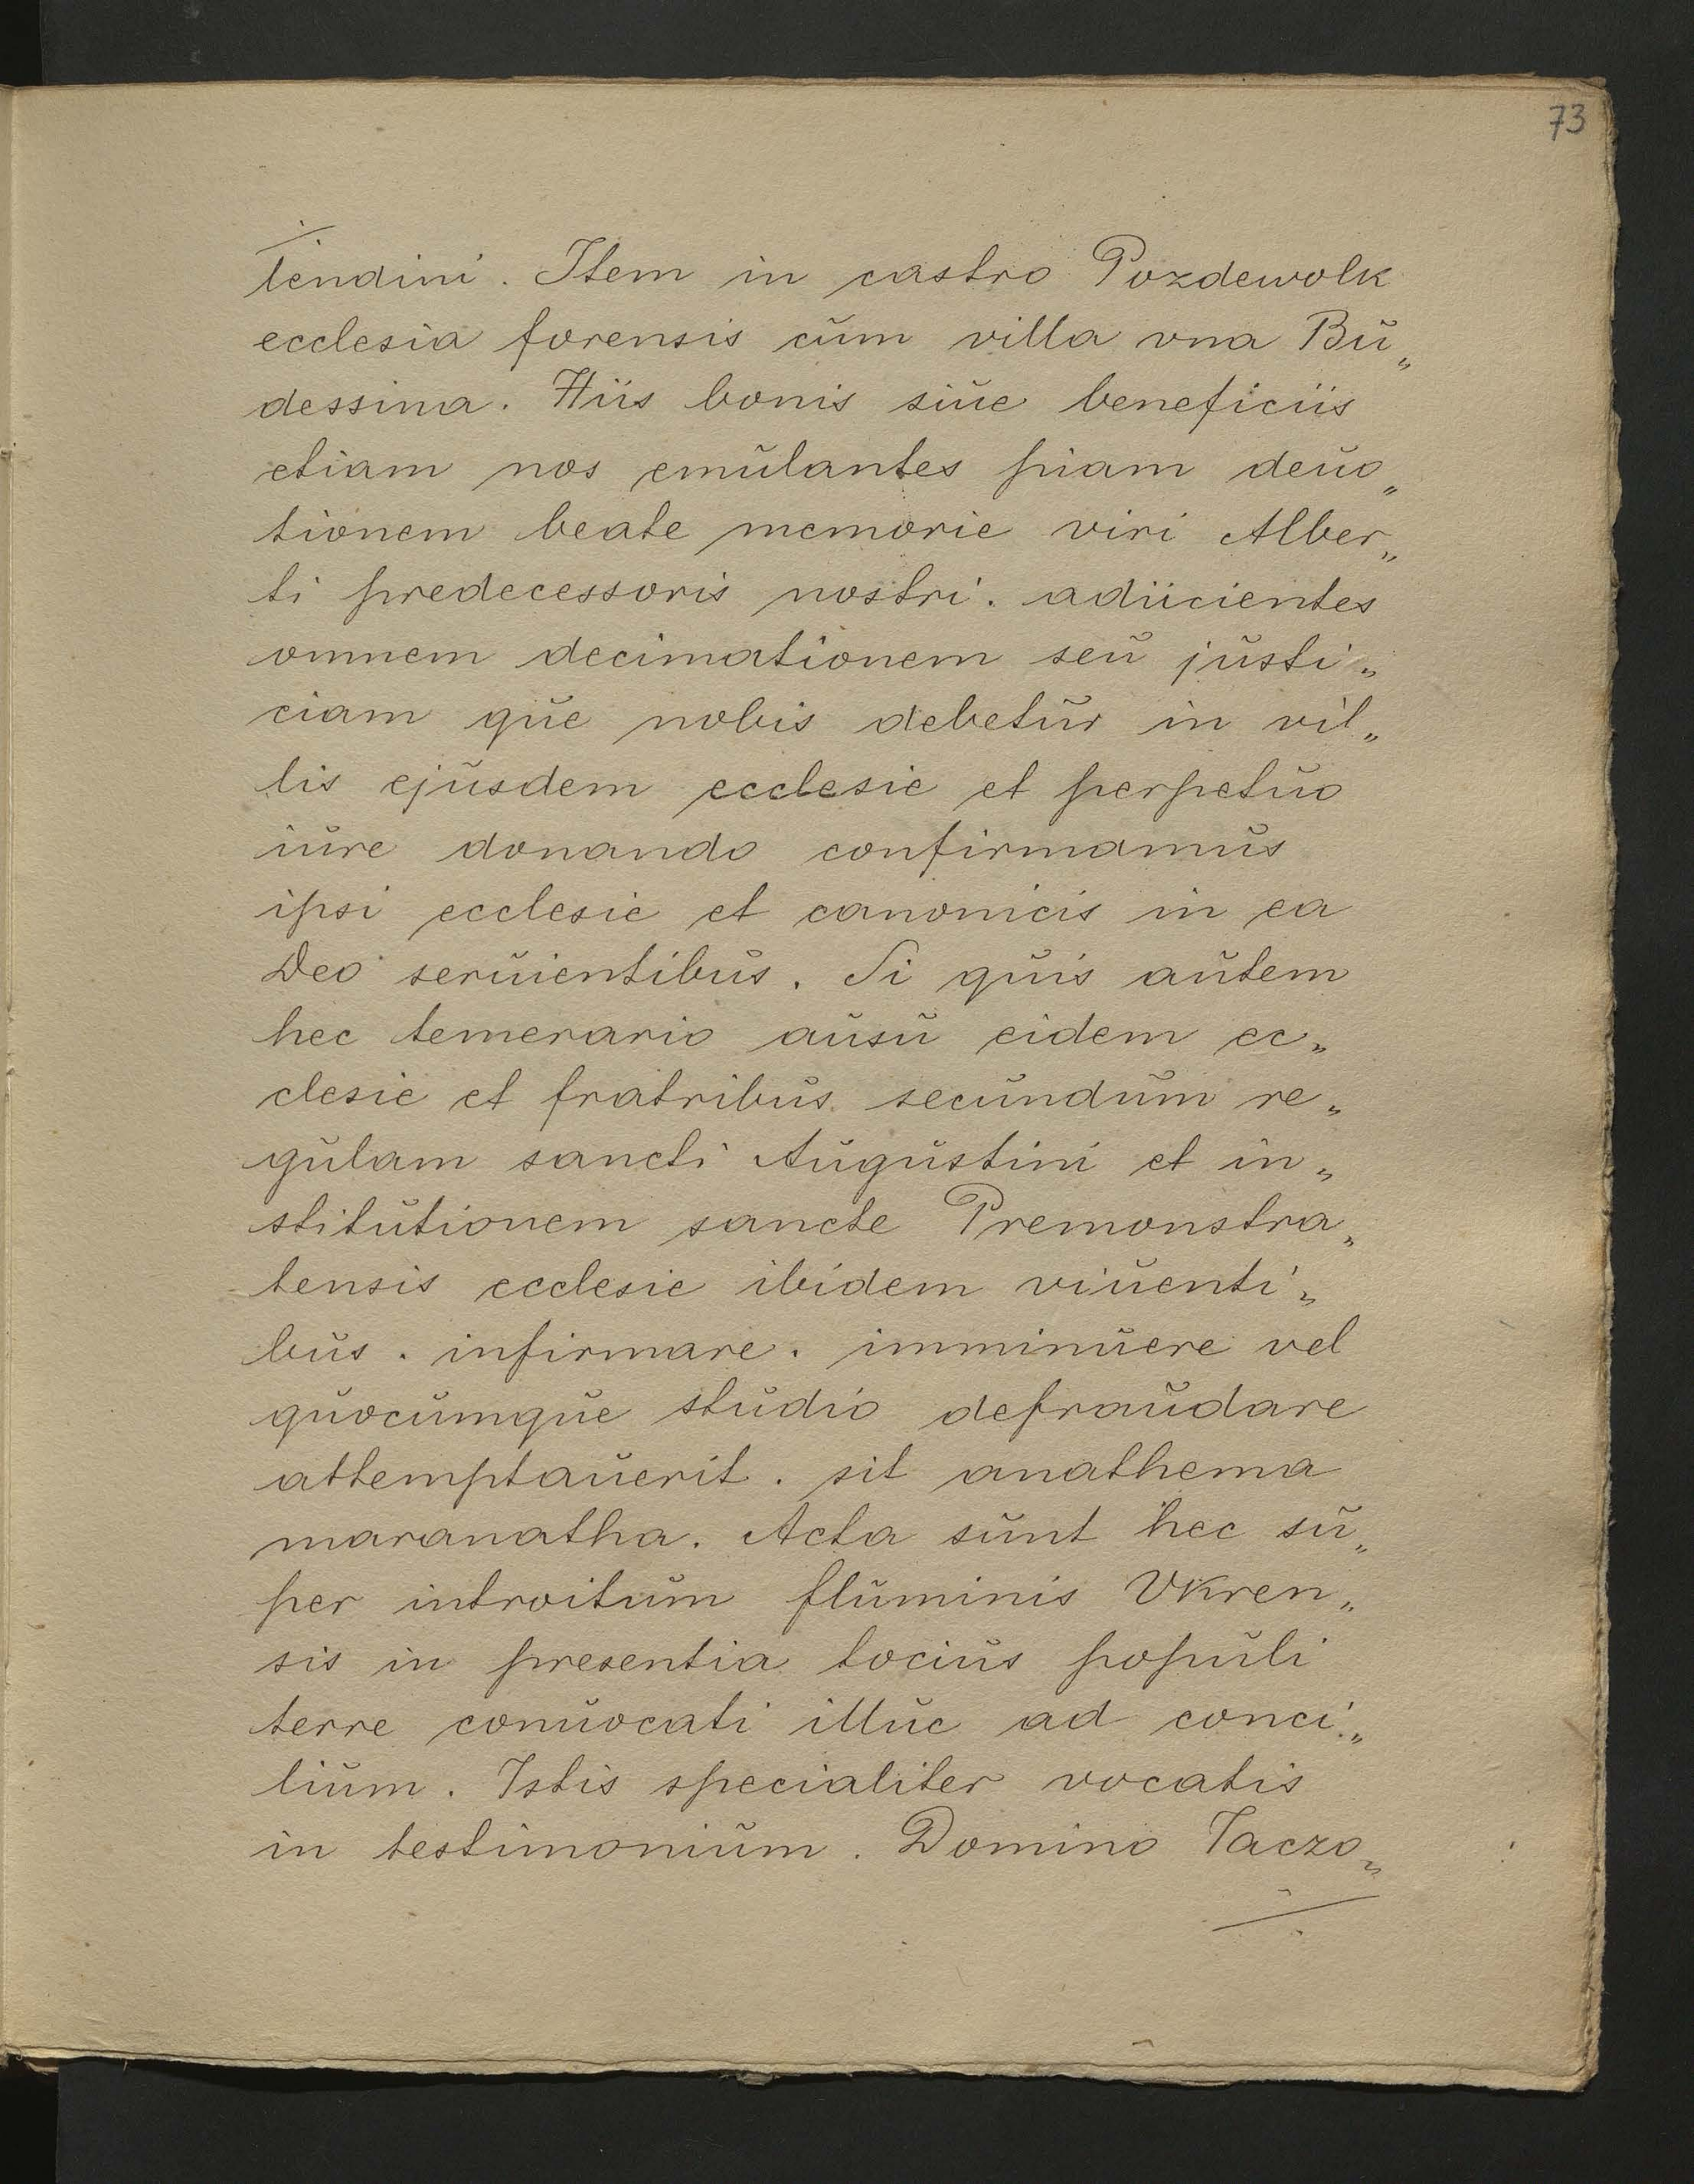 73
tendini. Item in castro Pozdewolk
ecclesia forensis cŭm villa vna Bŭ„
dessina. Hiis bonis siŭe beneficiis
etiam nos emŭlantes piam deŭo„
tionem beate memorie viri Alber„
ti predecessoris nostri. adiicientes
omnem decimationem seŭ jŭsti„
ciam qŭe nobis debetŭr in vil„
lis ejŭsdem ecclesie et perpetŭo
iŭre donando confirmamŭs
ipsi ecclesie et canonicis in ea
Deo serŭientibŭs. Si qŭis aŭtem
hec temerario aŭsŭ eidem ec„
clesie et fratribŭs secŭndŭm re„
gŭlam sancti Aŭgŭstini et in„
stitŭtionem sancte Premonstra„
tensis ecclesie ibidem viŭenti„
bŭs. infirmare. imminŭere vel
qŭocŭmqŭe stŭdio defraŭdare
attemptaŭerit. sit anathema
maranatha. Acta sŭnt hec sŭ„
per introitŭm flŭminis Vkren„
sis in presentia tociŭs popŭli
terre conŭocati illŭc ad conci„
liŭm. Istis specialiter vocatis
in testimoniŭm. Domino Iaczo„